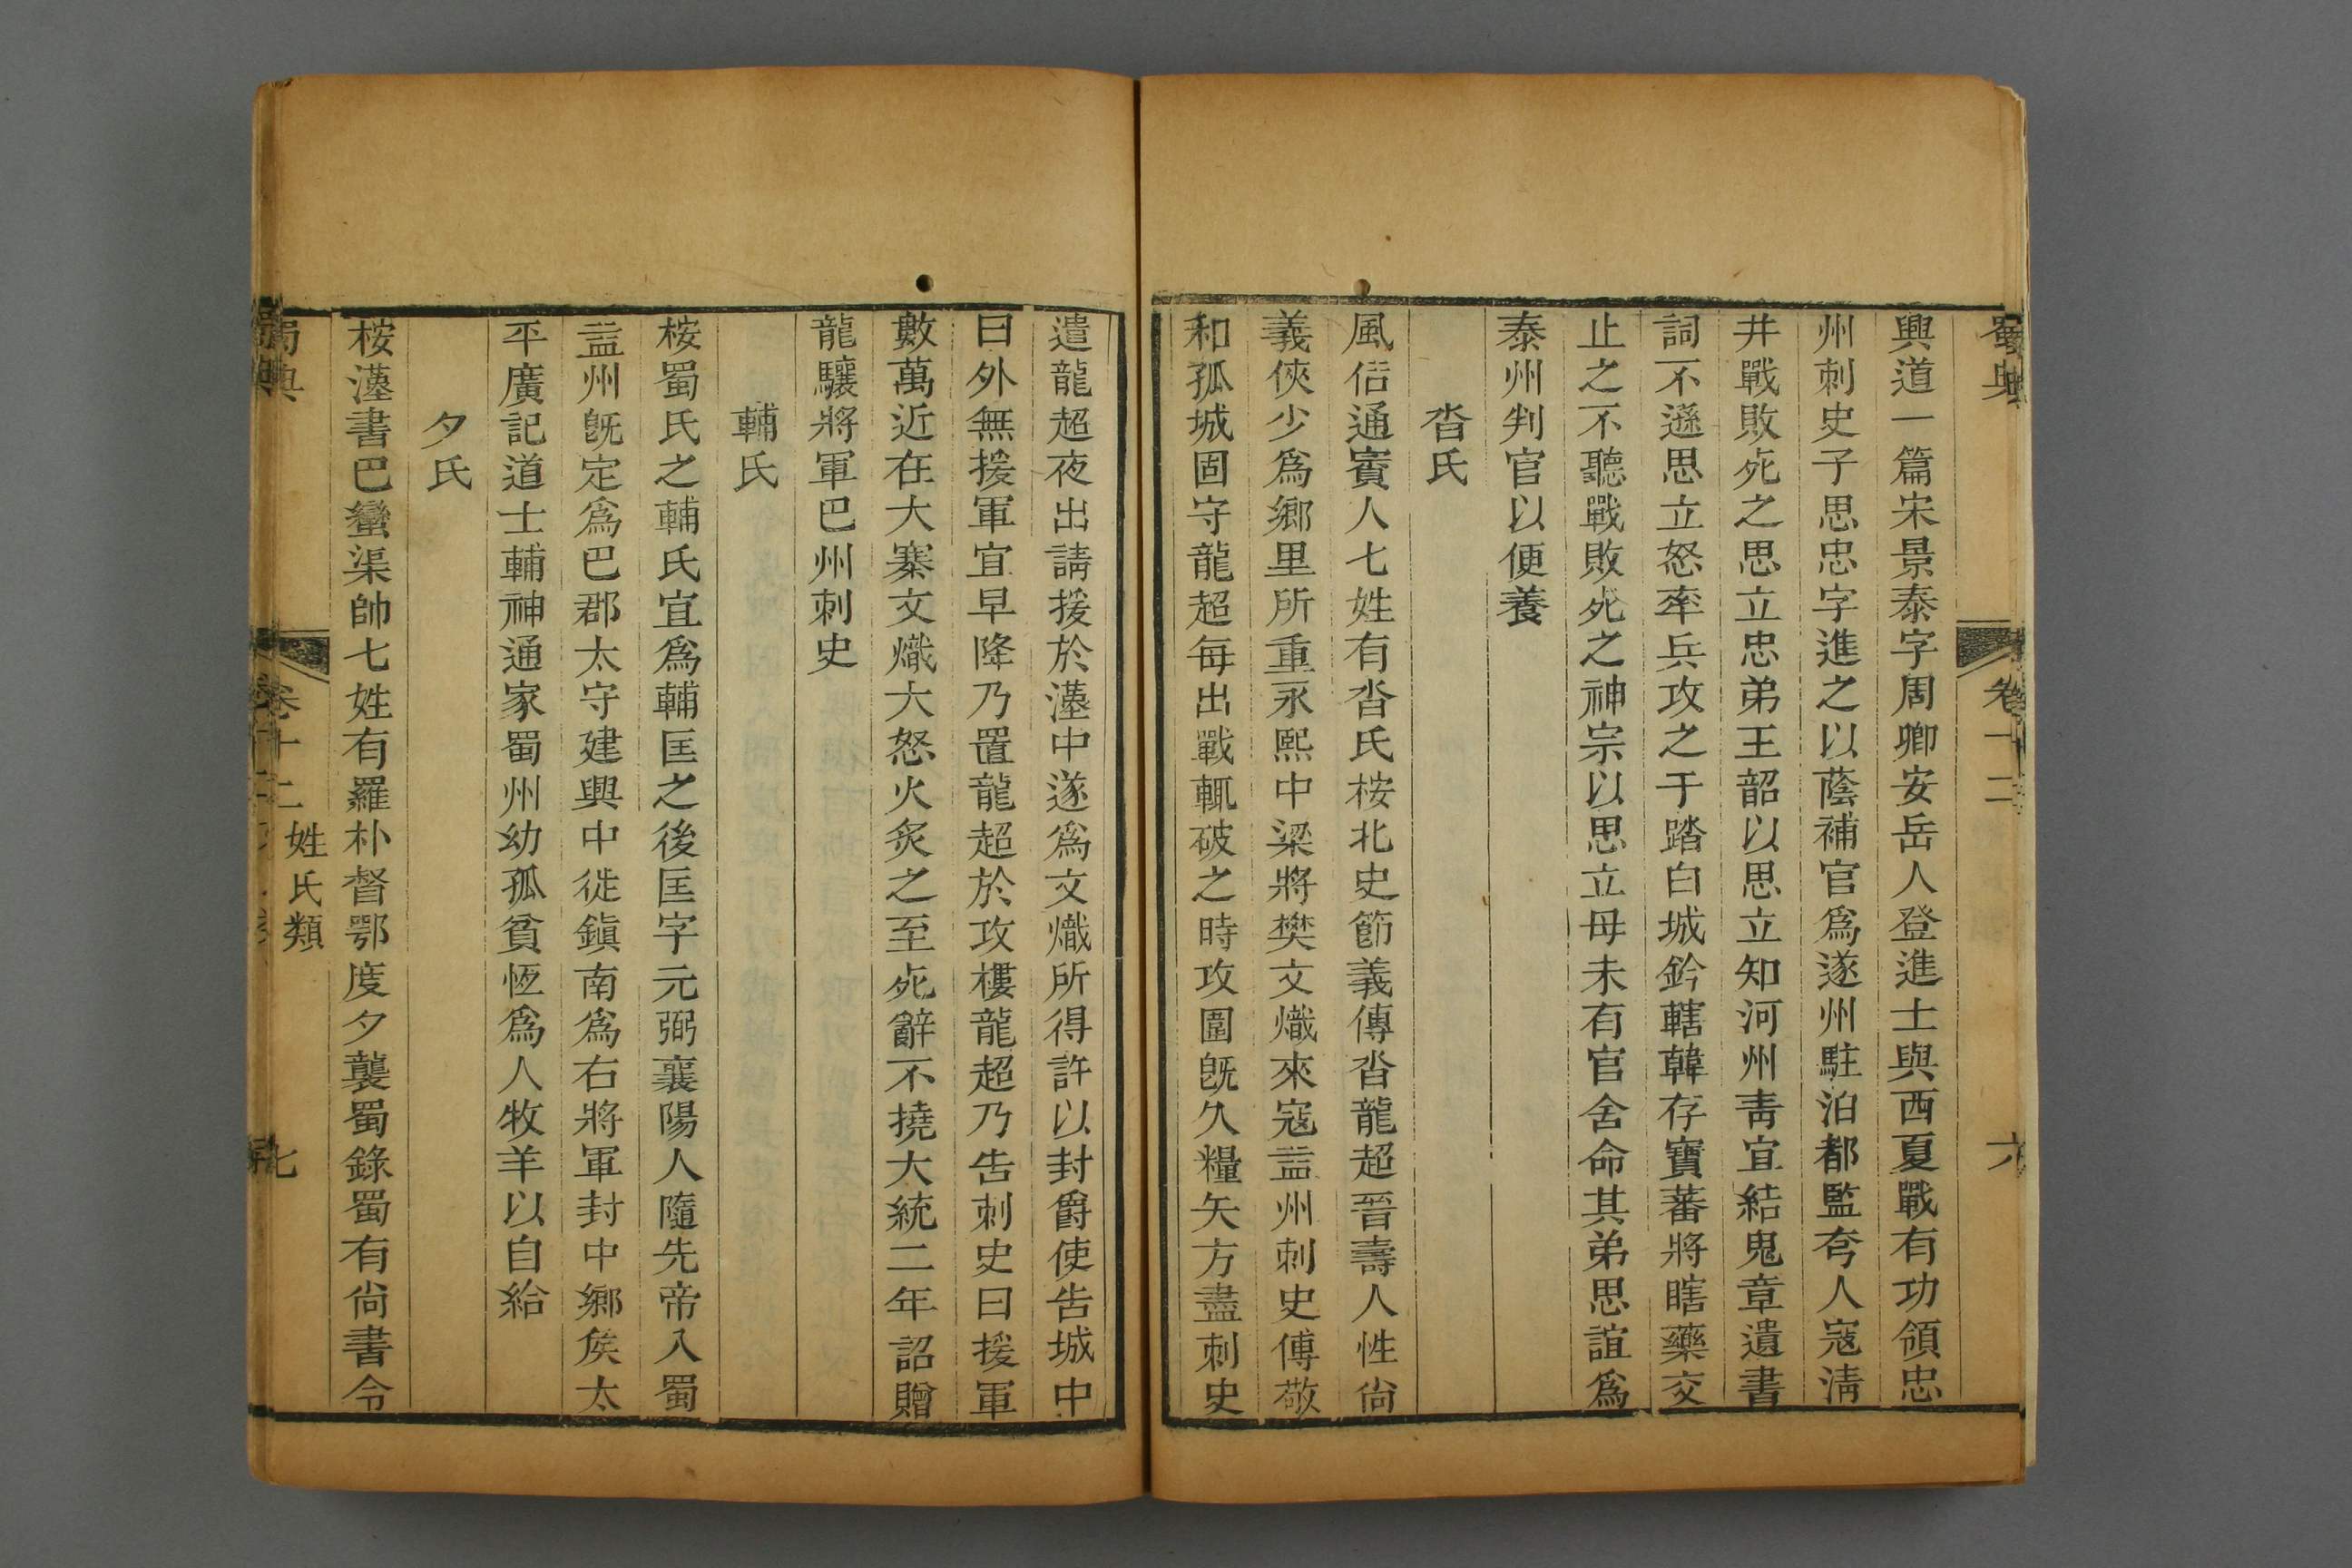 蜀典
卷十二
六
興道一篇宋景泰字周卿安岳人登進士與西夏戰有功領忠
州刺史子思忠字進之以蔭補官爲遂州駐泊都監夸人寇淯
井戰敗死之思立忠弟王韶以思立知河州靑宜結鬼章遺書
詞不遜思立怒率兵攻之于踏白城鈐轄韓存寶蕃將瞎藥交
止之不聽戰敗死之神宗以思立母未有官舍命其弟思誼爲
泰州判官以便養
沓氏
風俗通賨人七姓有沓氏桉北史節義傳沓龍超晉壽人性尙
義俠少爲鄉里所重永熙中梁將樊文熾來寇益州刺史傅敬
和孤城固守龍超每出戰輒破之時攻圍旣久糧矢方盡刺史
遣龍超夜出請援於漢中遂爲文熾所得許以封爵使告城中
曰外無援軍宜早降乃置龍超於攻樓龍超乃告刺史曰援軍
數萬近在大寨文熾大怒火炙之至死辭不撓大統二年詔贈
龍驤將軍巴州刺史
輔氏
桉蜀氏之輔氏宜爲輔匡之後匡字元弼襄陽人隨先帝入蜀
益州旣定爲巴郡太守建興中徙鎭南爲右將軍封中鄉矦太
平廣記道士輔神通家蜀州幼孤貧恆爲人牧羊以自給
夕氏
桉漢書巴蠻渠帥七姓有羅朴督鄂度夕襲蜀錄蜀有尙書令
蜀典
卷十二
姓氏類
七